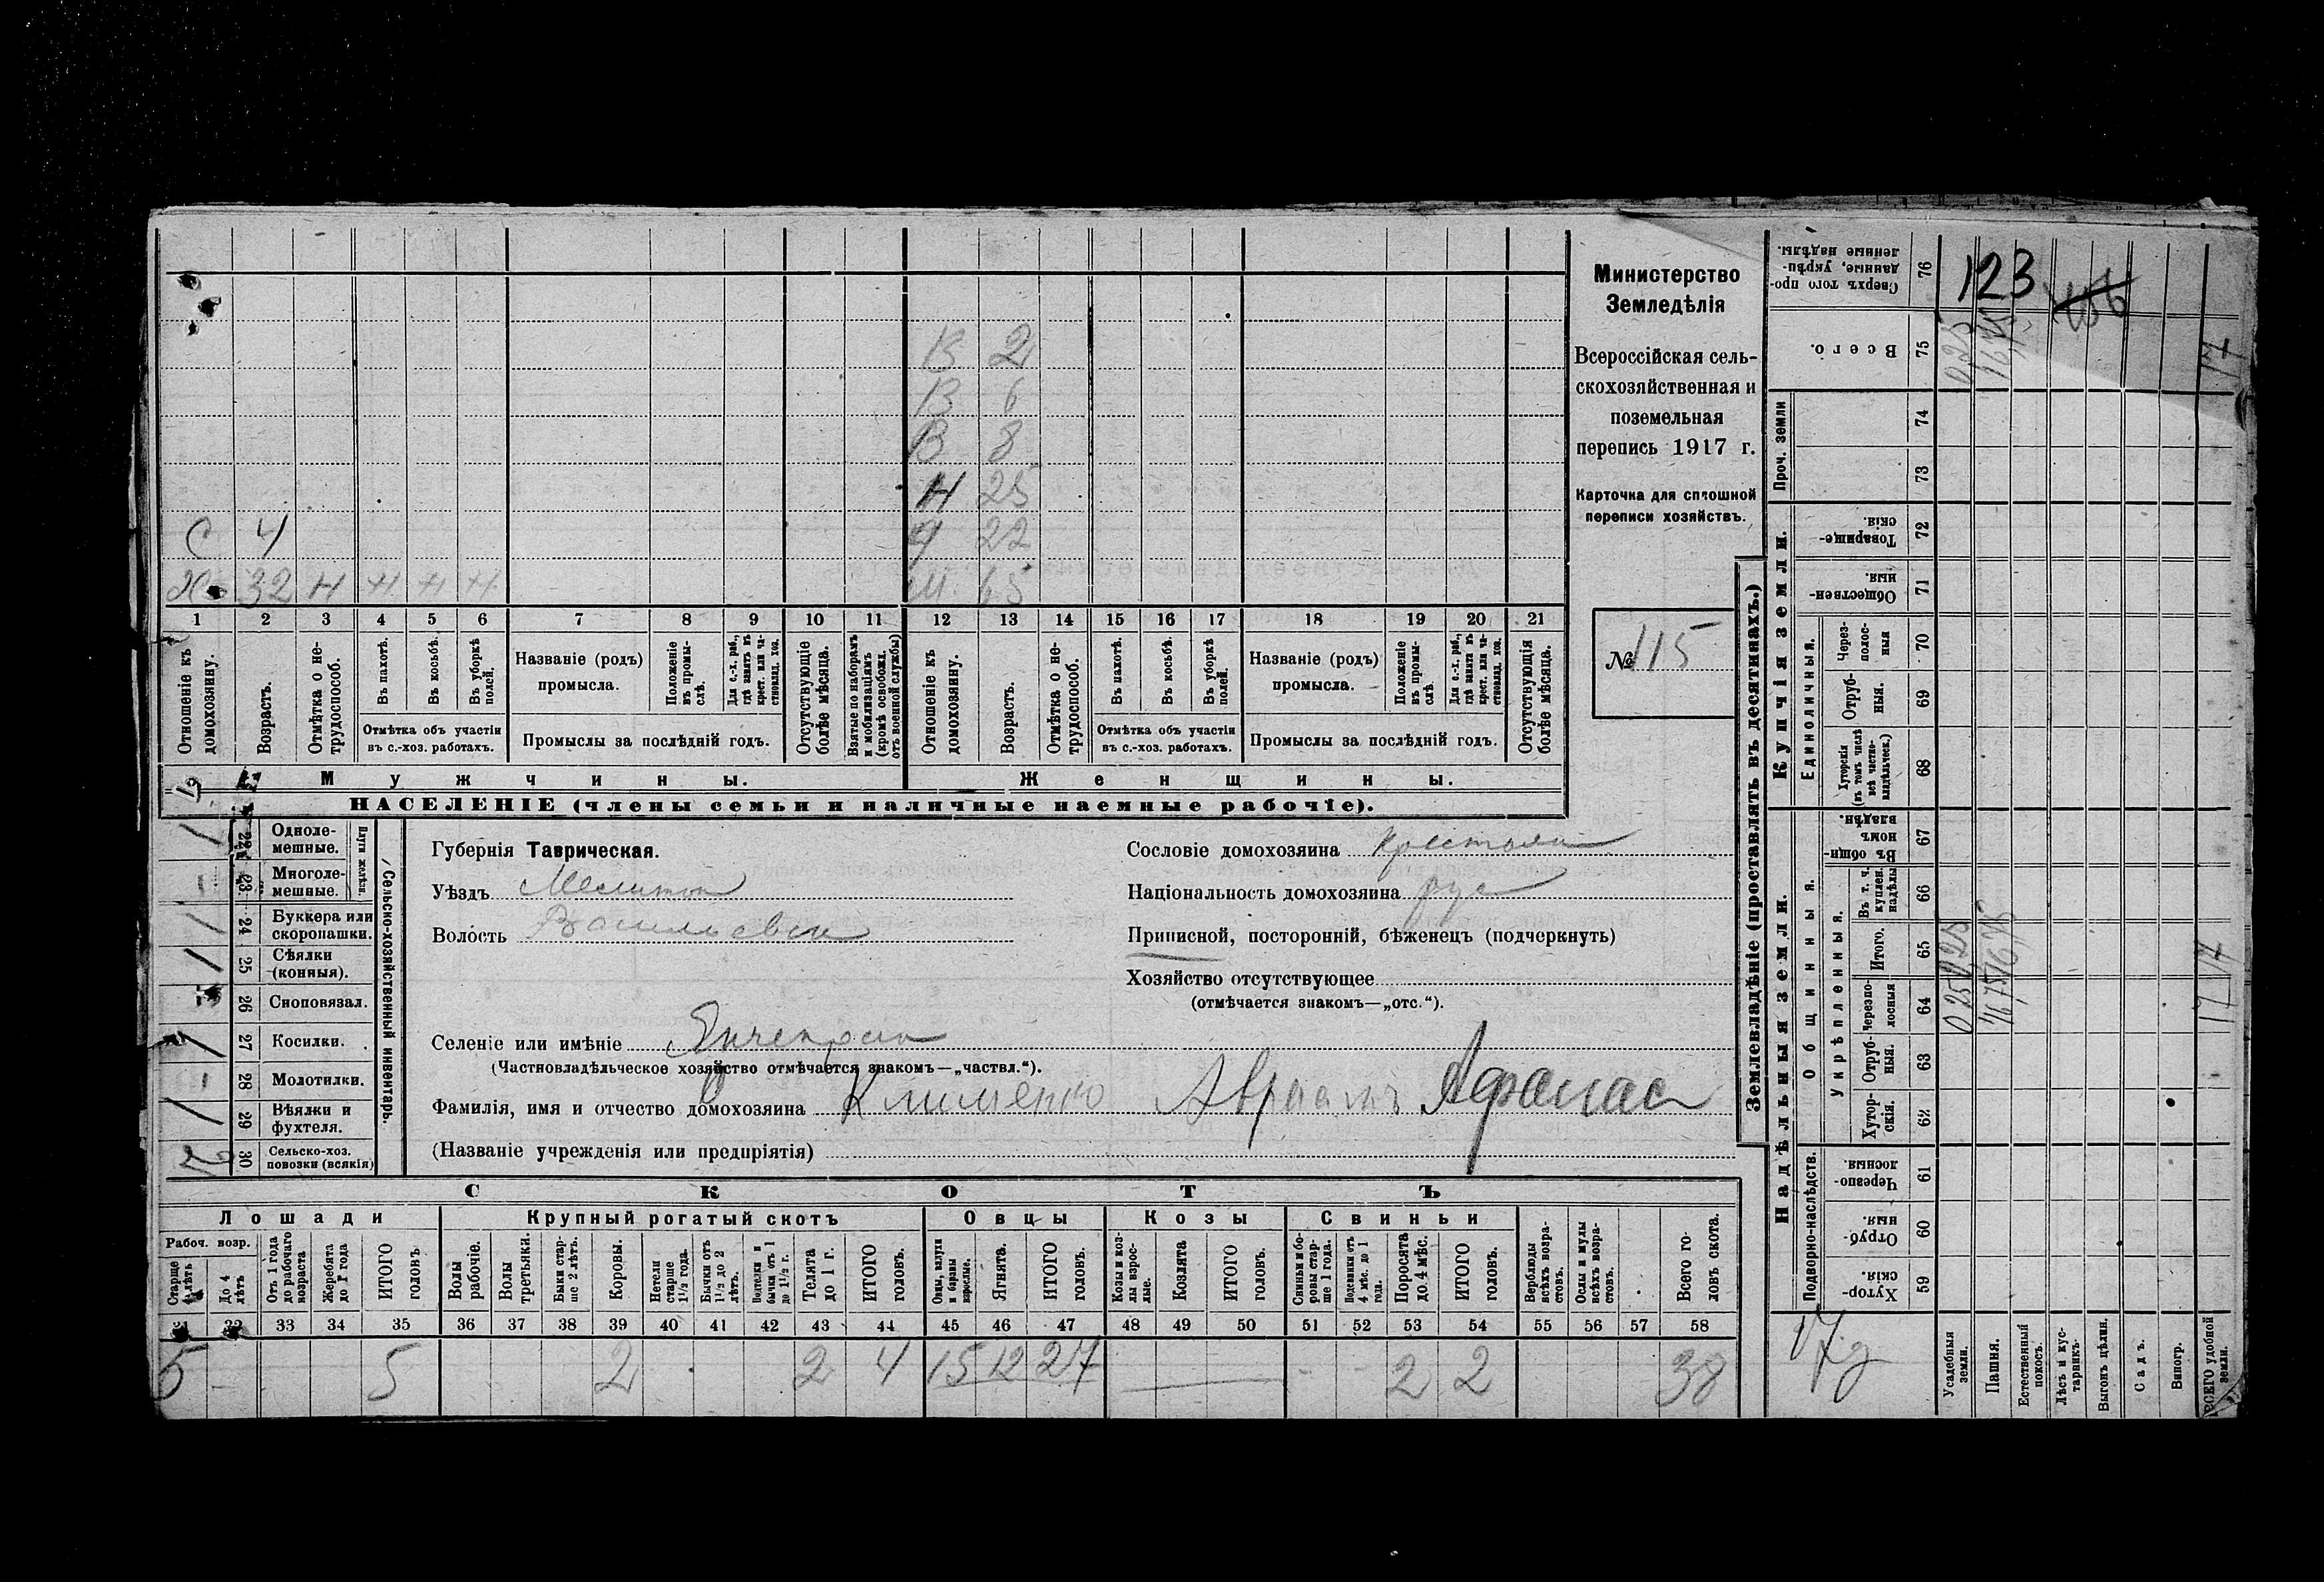 В 2
В 6
В 8
Н 25
С 4 22
Х 32 Н Н Н Н М 65
1 2 3 4 5 6 7 8 9 10 11 12 13 14 15 16 17 18 19 20 21
Отношеніе къ домохозяину.
Возрастъ.
Отмѣтка о не-трудоспособ.
Въ пахотѣ.
Въ косьбѣ.
Въ уборкѣ полей.
Отмѣтка объ участіи
въ с.-хоз. работахъ.
Названіе (родъ)
промысла.
Положеніе въ промы-слѣ.
Для с.-х. раб., гдѣ занятъ въ крест. или ча-стновлад. хоз.
Промыслы за послѣдній годъ.
Отсутствующіе болѣе мѣсяца.
Взятые по наборамъ и мобилизаціямъ (кромѣ освобожд. отъ военной службы)
Отношеніе къ домохозяину.
Возрастъ.
Отмѣтка о не-трудоспособ.
Въ пахотѣ.
Въ косьбѣ.
Въ уборкѣ полей.
Отмѣтка объ участіи
въ с.-хоз. работахъ.
Названіе (родъ)
промысла.
Положеніе въ промы-слѣ.
Для с.-х. раб., гдѣ занята въ крест. или ча-стновлад. хоз.
Промыслы за послѣдній годъ.
Отсутствующія болѣе мѣсяца.
Мужчины. Женщины.
НАСЕЛЕНІЕ (члены семьи и наличные наемные рабочіе).
Министерство
Земледѣлія
Всероссійская сель-
скохозяйственная и
поземельная
перепись 1917 г.
Карточка для сплошной
переписи хозяйствъ.
№ 115
Сельско-хозяйственный инвентарь.
Плуги желѣзн.
22 Одноле-
мешные. 1
23 Многоле-
мешные.
24 Буккера или
скоропашки. 1
25 Сѣялки
(конныя). 1
26 Сноповязал.
27 Косилки. 1
28 Молотилки. -
29 Вѣялки и
фухтеля. 1
30 Сельско-хоз.
повозки (всякія)
Губернія Таврическая.
Уѣздъ Мелитоп
Волость Васильевск
Селеніе или имѣніе Янчекрак
(Частновладѣльческое хозяйство отмѣчается знакомъ—„частвл.“).
Фамилія, имя и отчество домохозяина Клименко Авраамъ Афанас
(Названіе учрежденія или предпріятія)
Сословіе домохозяина крестьян
Національность домохозяина рус
Приписной, посторонній, бѣженецъ (подчеркнуть)
Хозяйство отсутствующее
(отмѣчается знакомъ—„отс.“).
СКОТЪ
Лошади Крупный рогатый скотъ Овцы Козы Свиньи
Рабоч. возр.
Старше 4 лѣтъ
До 4 лѣтъ
Отъ 1 года до рабочаго возраста
Жеребята до 1 года
ИТОГО головъ
Волы рабочіе.
Волы третьяки.
Быки стар-ше 2 лѣтъ.
Коровы.
Нетели старше 1½ года.
Бычки отъ 1½ до 2 лѣтъ.
Подтелки и бычки отъ 1 до 1½ г.
Телята до 1 г.
ИТОГО головъ.
Овцы, валухи и бараны взрослые.
Ягнята.
ИТОГО головъ.
Козы и коз-лы взрос-лые.
Козлята
ИТОГО головъ.
Свиньи и бо-ровы стар-ше 1 года.
Подсвинки отъ 4 мѣс. до 1 года.
Поросята до 4 мѣс.
ИТОГО головъ.
Верблюды всѣхъ возра-стовъ.
Ослы и мулы всѣхъ возра-стовъ.
Всего го-ловъ скота.
31 32 33 34 35 36 37 38 39 40 41 42 43 44 45 46 47 48 49 50 51 52 53 54 55 56 57 58
5 - 5 2 2 4 15 12 27 - - 2 2 38
Землевладѣніе (проставлять въ десятинахъ.)
Надѣльныя земли. Купчія земли. Проч. земли
Подворно-наслѣдств.
Общинныя.
Укрѣпленныя.
Единоличныя.
59 Хутор-скія.
60 Отруб-ныя.
61 Черезпо-лосныя.
62 Хутор-скія.
63 Отруб-ныя.
64 Черезпо-лосныя
65 Итого.
66 Въ т. ч. куплен. надѣлы
67 Въ общин-номъ владѣн.
68 Хуторскія (въ томъ числѣ всѣ частно-владѣльческ.)
69 Отруб-ныя.
70 Через-полос-ныя
71 Обществен-ныя.
72 Товарище-скія.
73
74
75 Всего.
76 Сверхъ того про-данные, укрѣп-ленные надѣлы.
17 д
Усадебныя земли. 0,25 0,25 0,25
Пашня. 16,75 16,75 16,75
Естественный покосъ.
Лѣсъ и кус-тарникъ.
Выгонъ цѣлин.
Садъ.
Виногр.
ВСЕГО удобной земли. 17 17 17
123